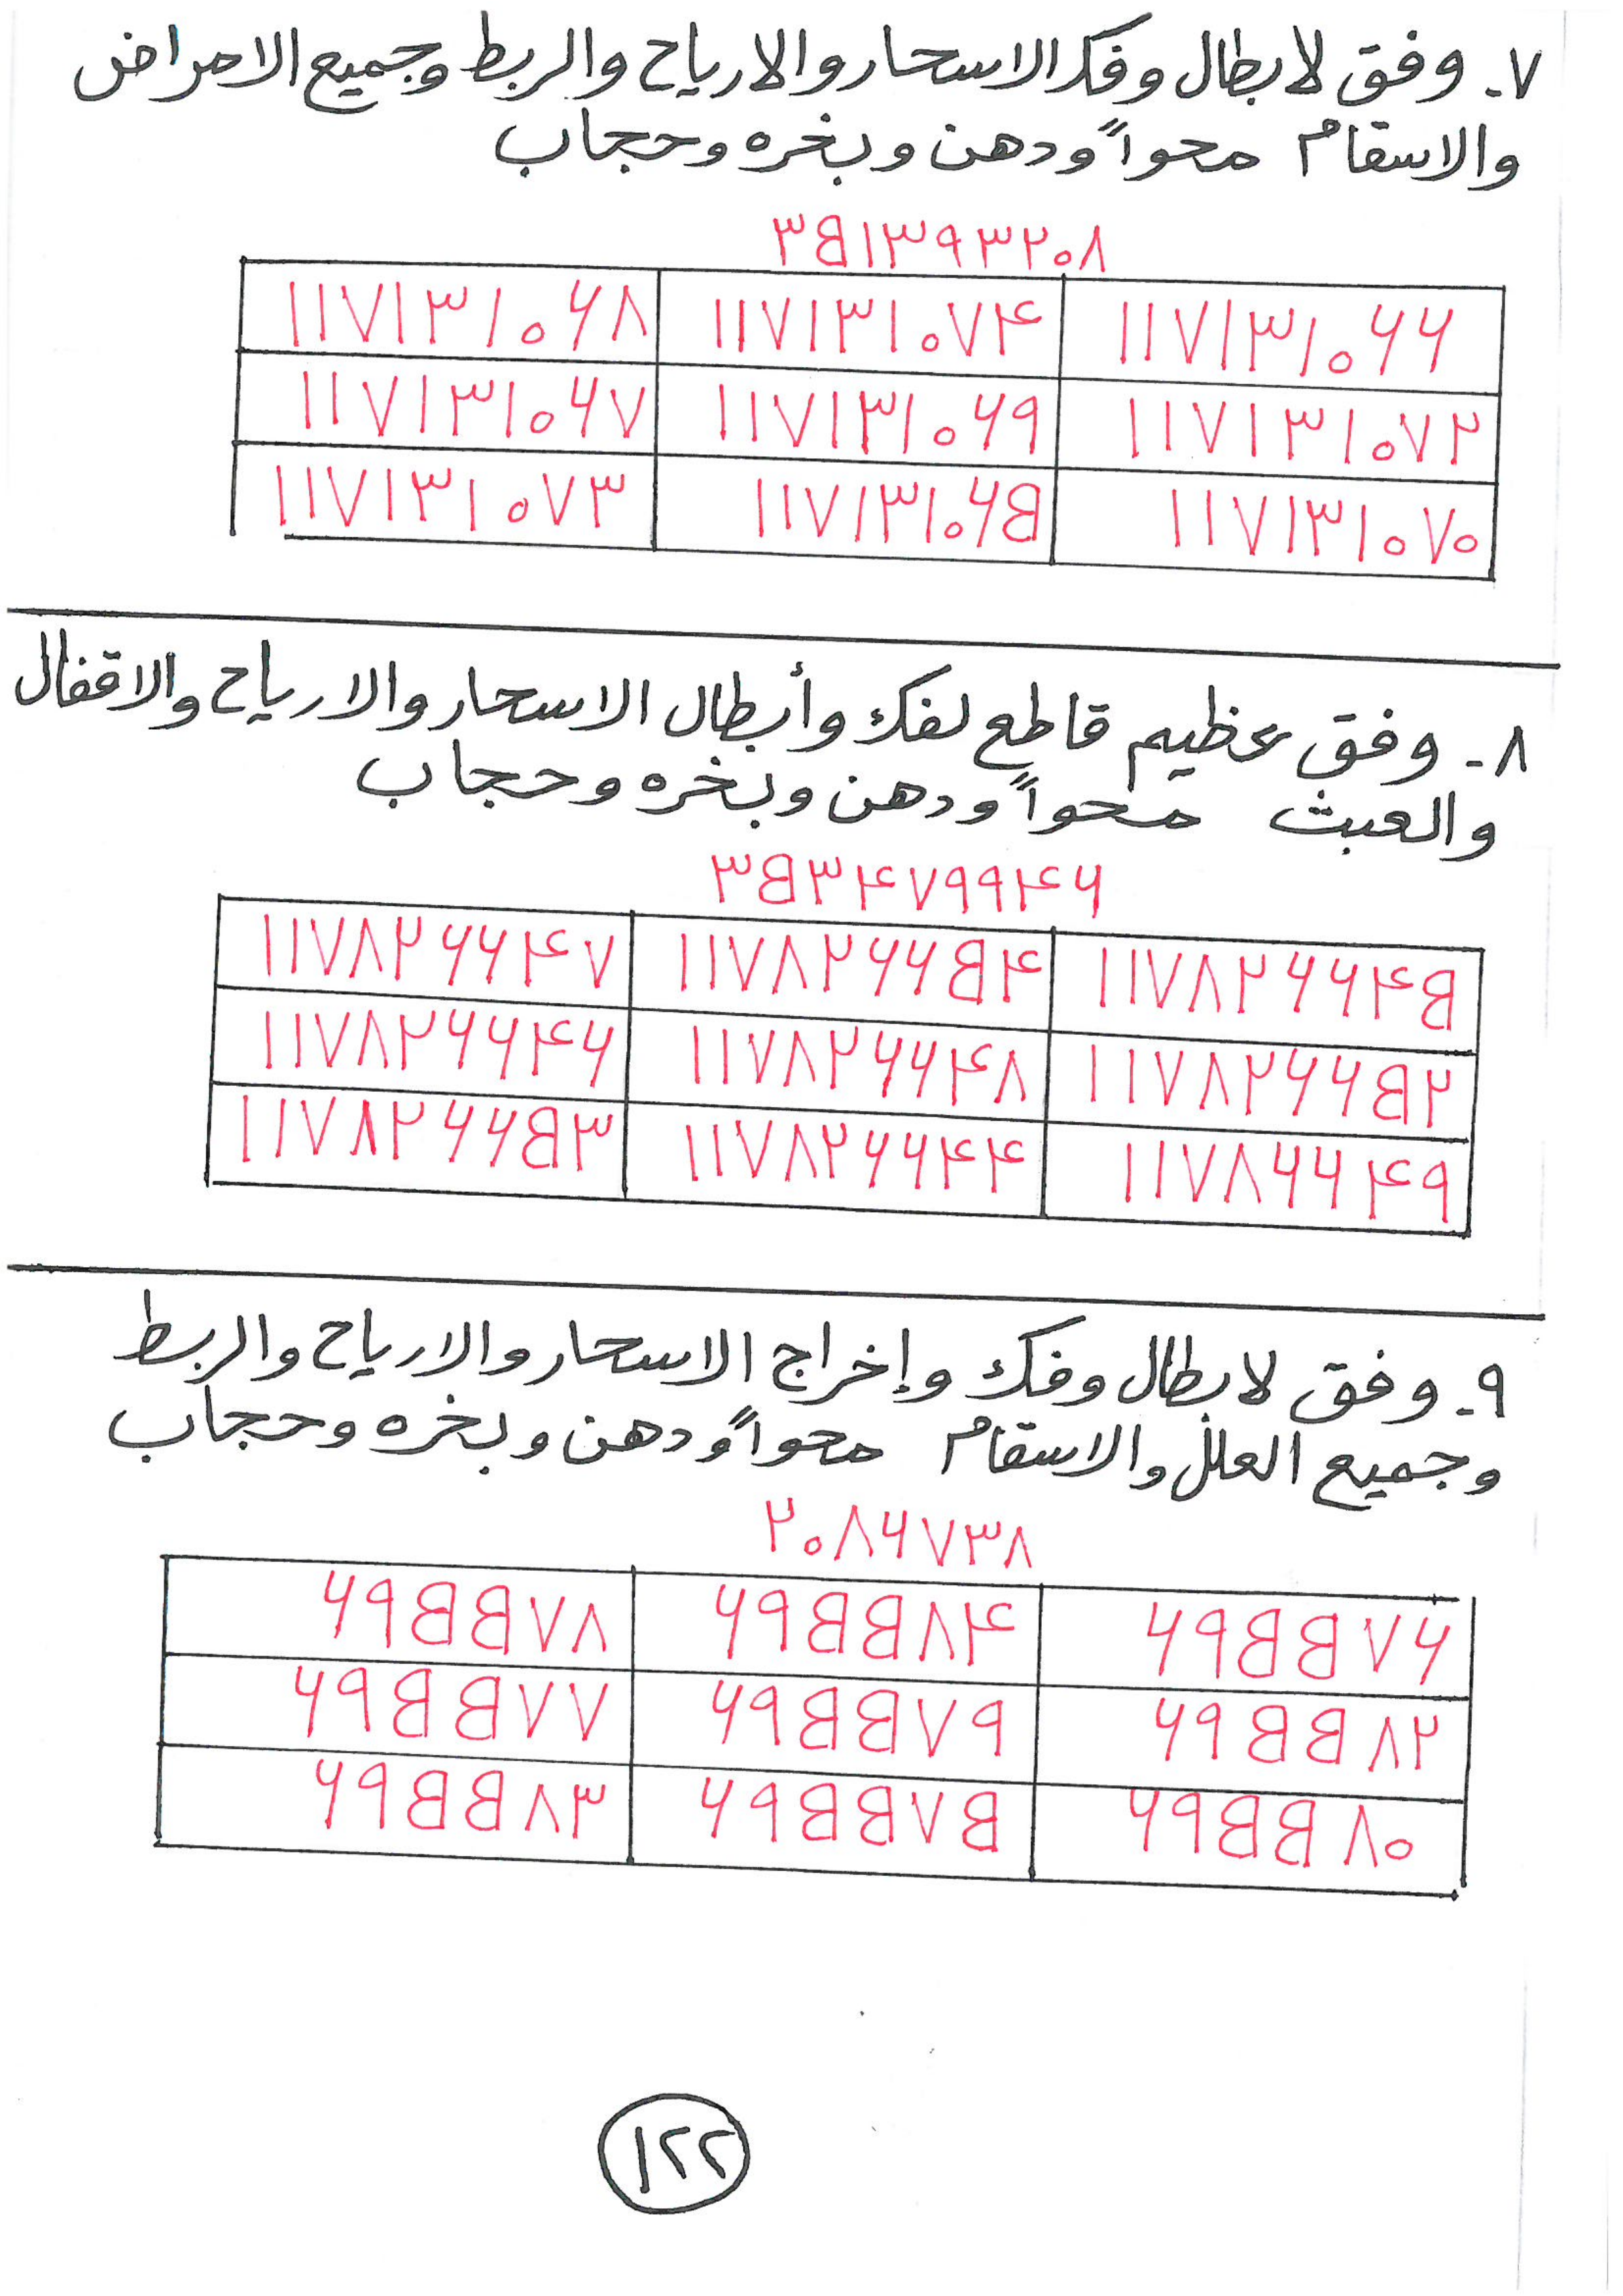 ٧ـ وفق لابطال وفك الاسحار والارياح والربط وجميع الامراض
والاسقام محواً ودهن وبخره وحجاب
٣٥١٣٩٣٢٠٨
١١٧١٣١٠٦٨ ١١٧١٣١٠٧٤ ١١٧١٣١٠٦٦
١١٧١٣١٠٦٧ ١١٧١٣١٠٦٩ ١١٧١٣١٠٧٢
١١٧١٣١٠٧٣ ١١٧١٣١٠٦٥ ١١٧١٣١٠٧٠
٨ـ وفق عظيم قاطع لفك وأبطال الاسحار والارياح والاقفال
والعبث محواً ودهن وبخره وحجاب
٣٥٣٤٧٩٩٤٦
١١٧٨٢٦٦٤٧ ١١٧٨٢٦٦٥٤ ١١٧٨٢٦٦٤٥
١١٧٨٢٦٦٤٦ ١١٧٨٢٦٦٤٨ ١١٧٨٢٦٦٥٢
١١٧٨٢٦٦٥٣ ١١٧٨٢٦٦٤٤ ١١٧٨٦٦٤٩
٩ـ وفق لابطال وفك وإخراج الاسحار والارياح والربط
وجميع العلل والاسقام محواً ودهن وبخره وحجاب
٢٠٨٦٧٣٨
٦٩٥٥٧٨ ٦٩٥٥٨٤ ٦٩٥٥٧٦
٦٩٥٥٧٧ ٦٩٥٥٧٩ ٦٩٥٥٨٢
٦٩٥٥٨٣ ٦٩٥٥٧٥ ٦٩٥٥٨٠
١٢٢